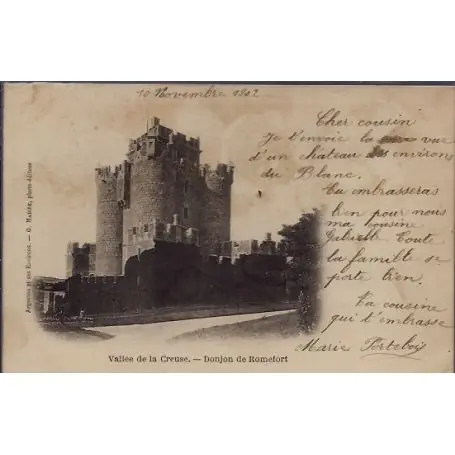 10 Novembre 1902
Cher cousin
Je t'envoie la vue
d'un château des environs
du Blanc.
Tu embrasseras
bien pour nous
ma cousine
Toute
la famille se
porte bien.
Ta cousine
qui t'embrasse
Marie
Vallée de la Creuse. — Donjon de Romefort
Argenton et ses Environs. — G. Mader, photo-éditeur